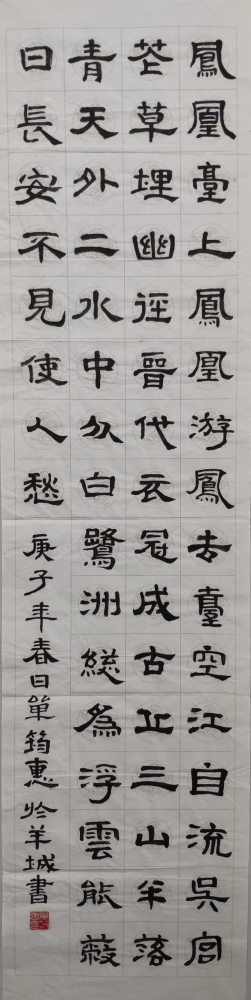 鳳凰臺上鳳凰游鳳去臺空江自流吳宮
花草埋幽徑晉代衣冠成古丘三山半落
青天外二水中分白鷺洲緫爲浮雲能蔽
日長安不見使人愁
庚子年春日單筠惠於羊城書